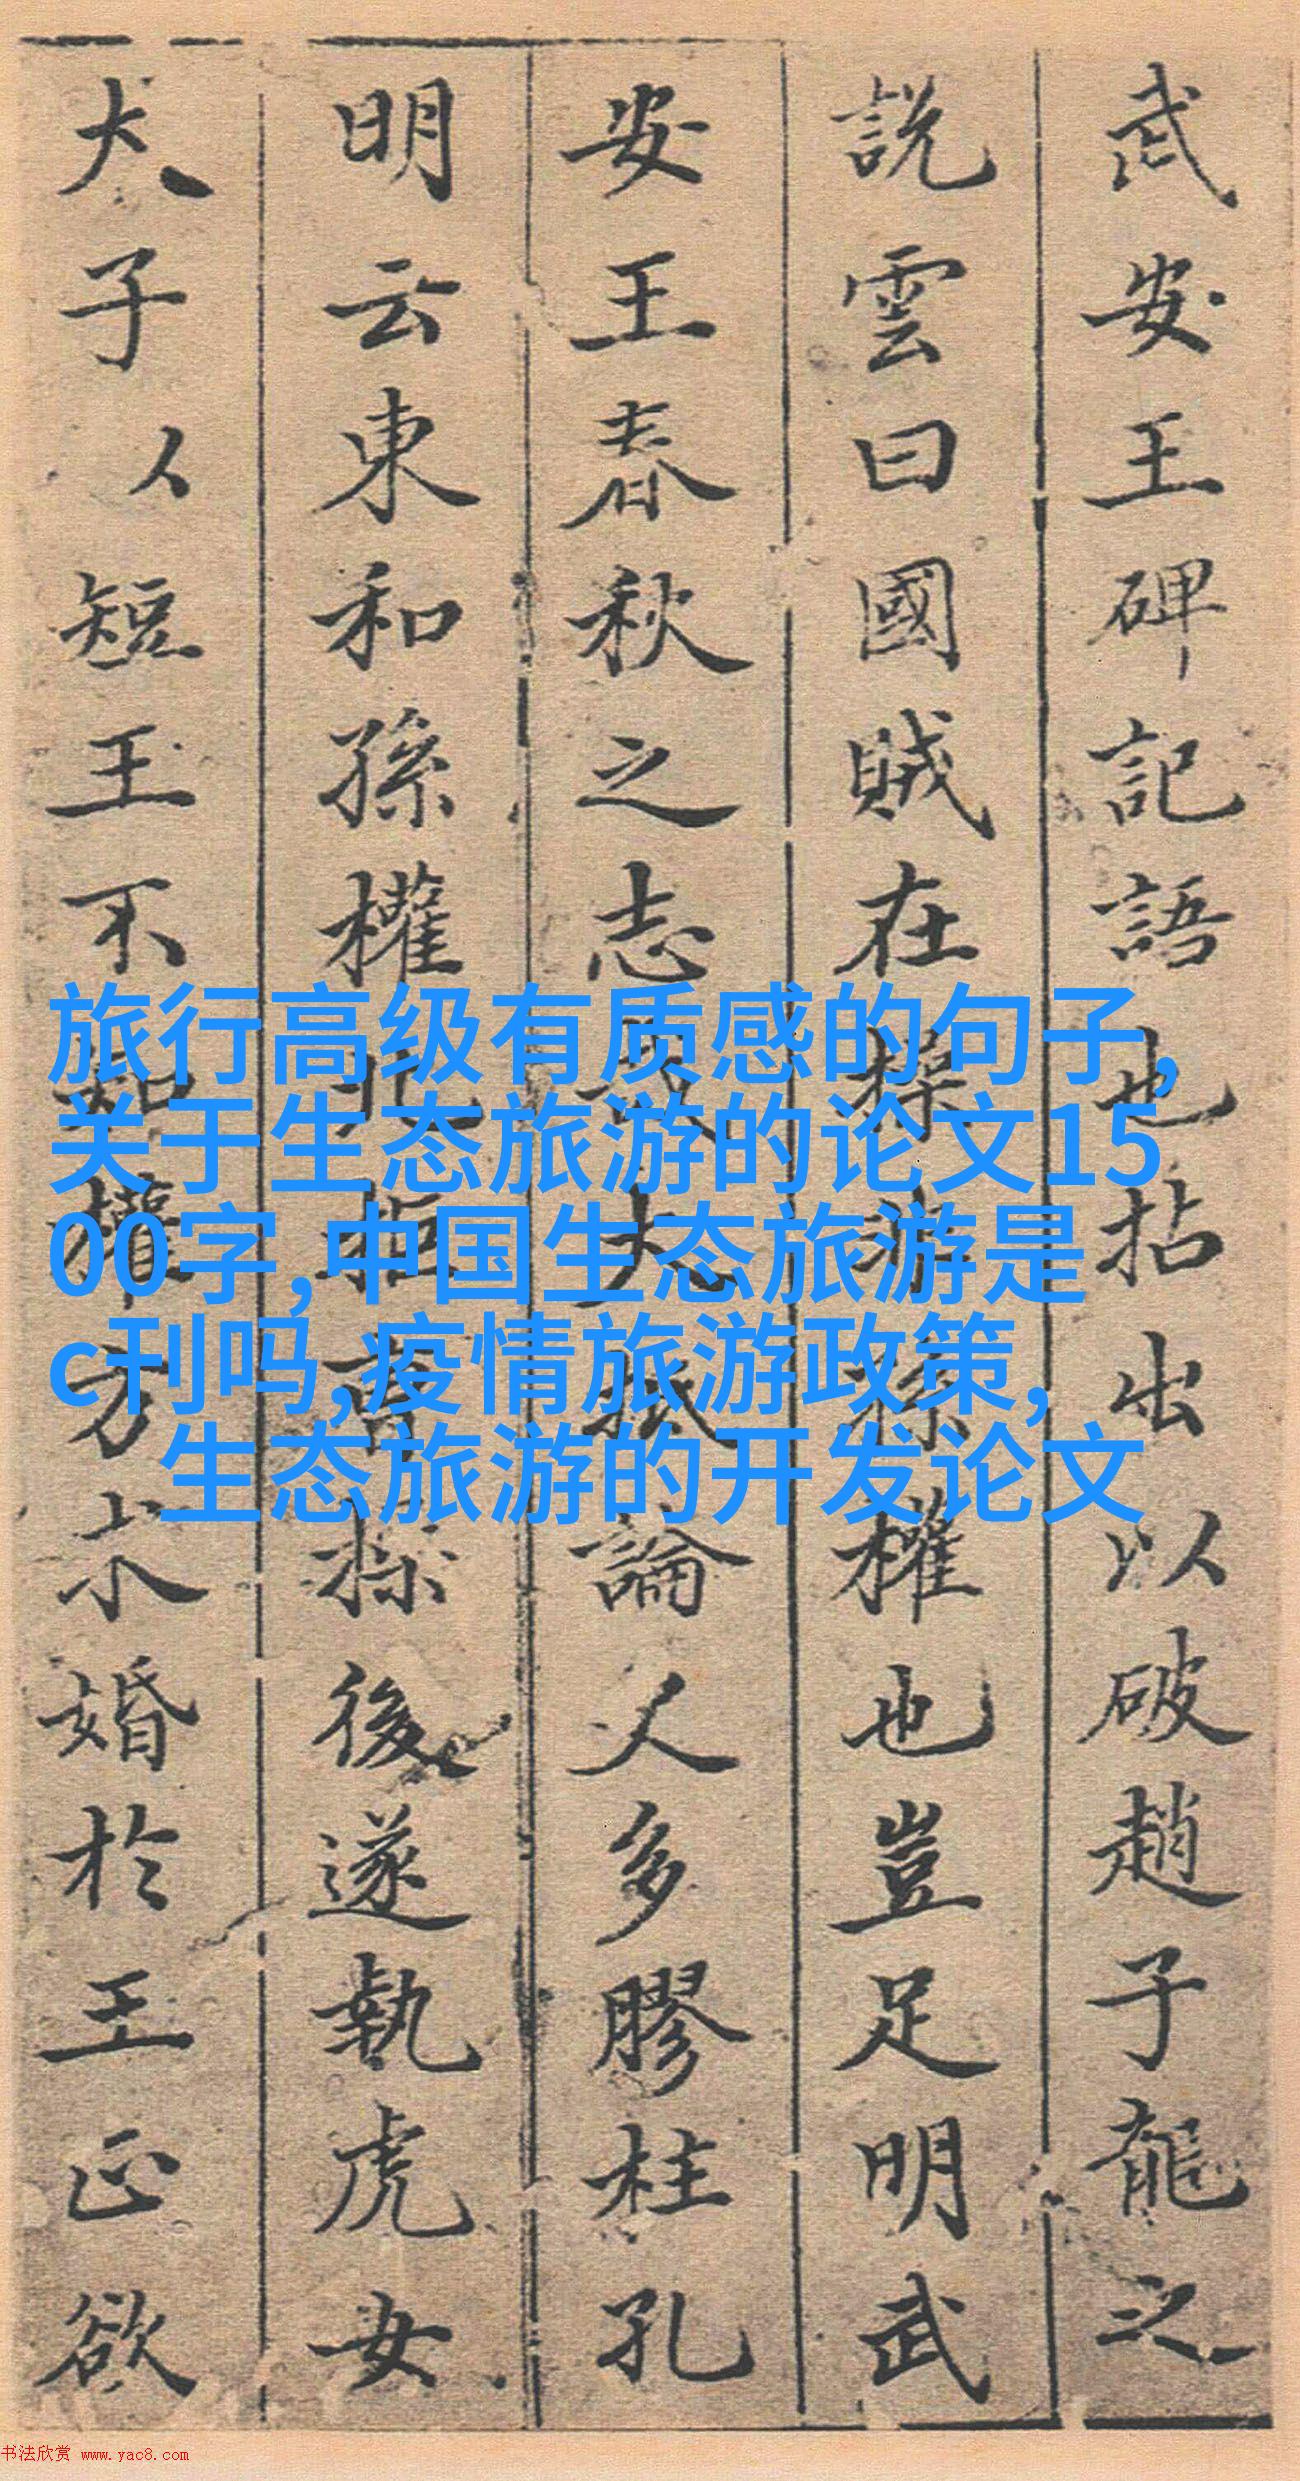 武安王碑記語也拈出以破趙子龍之
說雲曰國賊在操非孫權也豈足明武
安王春秋之志大論人多膠柱孔
明云東和孫權北拒曹操後遂執虎女
犬子人短王不知權方求婚於王正欲
旅行高级有质感的句子,
关于生态旅游的论文15
00字,中国生态旅游是
c刊吗,疫情旅游政策,
生态旅游的开发论文
书法欣赏 www.yac8.com